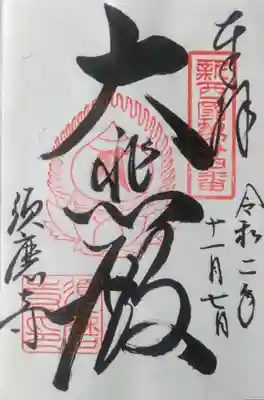 奉拝
新西国第廿四番
令和二年
十一月七日
大悲殿
須磨寺
須磨寺印